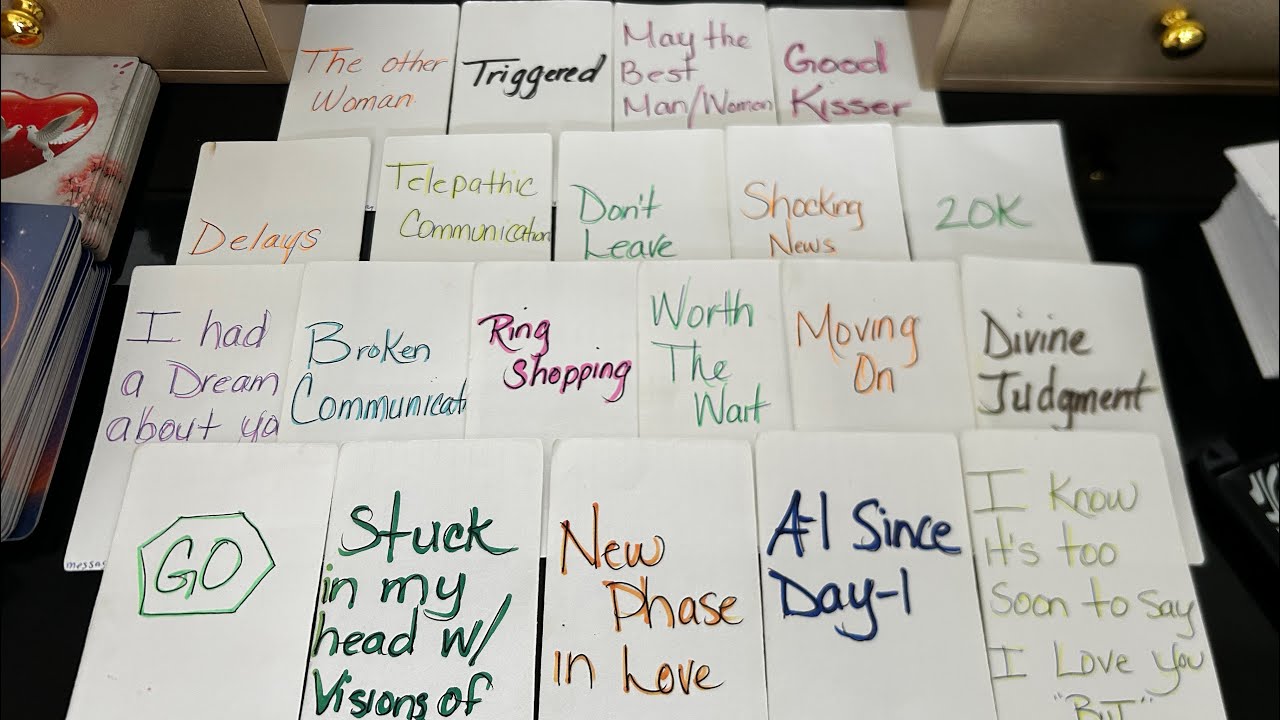 The other
Woman
Triggered
May the
Best
Man/Women
Good
Kisser
Delays
Telepathic
Communication
Don't
Leave
Shocking
News
20K
I had
a Dream
about yo
Broken
Communicati
Ring
Shopping
Worth
The
Wait
Moving
On
Divine
Judgment
GO
Stuck
in my
head w/
Visions of
New
Phase
in Love
A-1 Since
Day-1
I Know
it's too
Soon to Say
I Love you
"BUT"